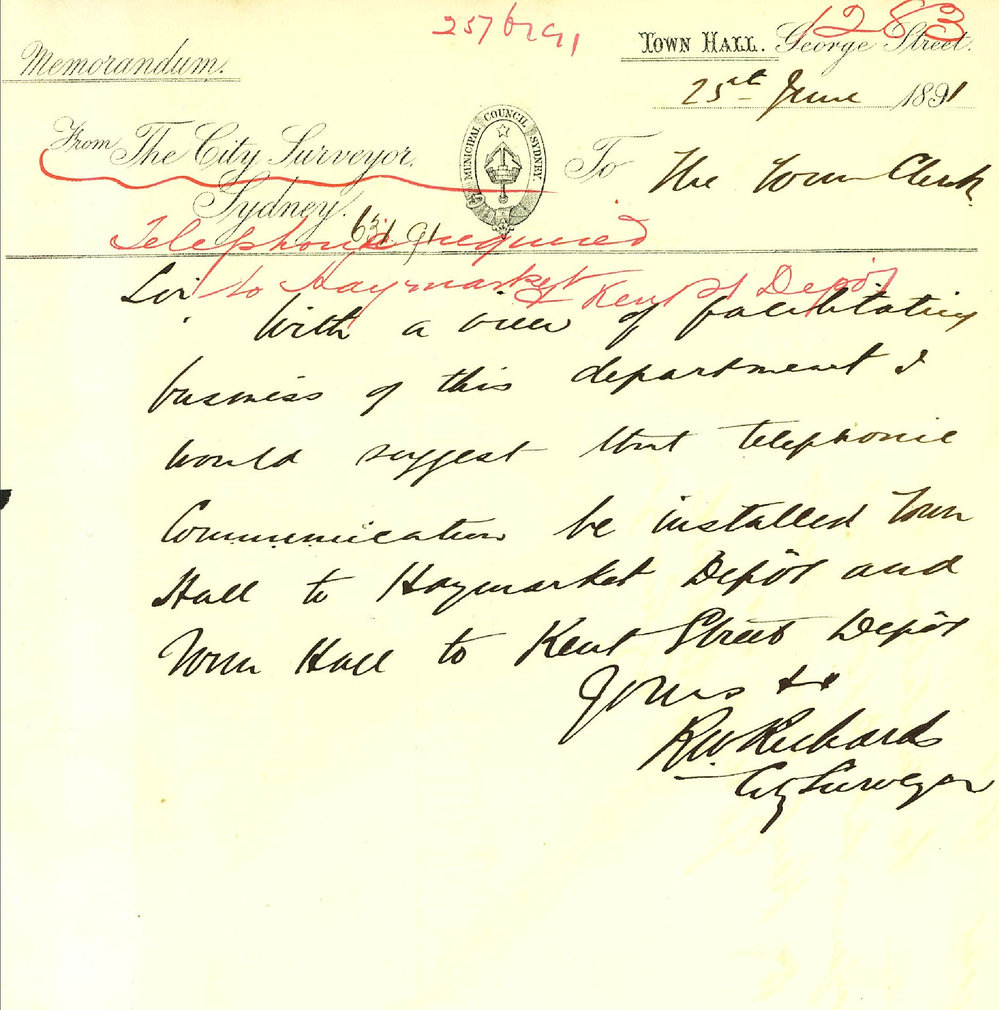 25/6/91
1283
TOWN HALL. George Street.
Memorandum.
25th June 1891
From The City Surveyor,
Sydney.
MUNICIPAL COUNCIL SYDNEY.
To The Town Clerk
91
Telephone required
to Haymarket & Kent St Depôt
Sir
With a view of facilitating
business of this department I
would suggest that telephonic
Communication be installed Town
Hall to Haymarket Depôt and
Town Hall to Kent Street Depôt
Yours &c
RW Richards
City Surveyor